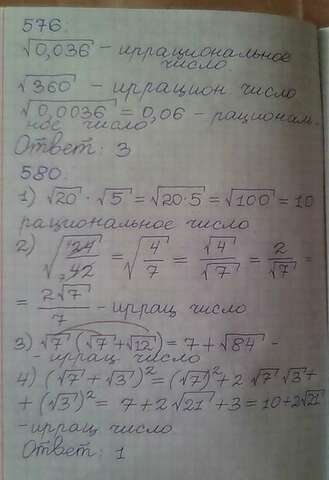 576.
√0,036 - иррациональное
число.
√360 - иррацион число
√0,0036 = 0,06 - рациональ-
ное число
Ответ: 3
580.
1) √20 · √5 = √20·5 = √100 = 10
рациональное число
2) √24/42 = √4/7 = √4/√7 = 2/√7 =
= 2√7/7 - иррац число
3) √7 (√7 + √12) = 7 + √84 -
- иррац число
4) (√7 + √3)² = (√7)² + 2 √7 √3 +
+ (√3)² = 7 + 2√21 + 3 = 10 + 2√21
- иррац число
Ответ: 1